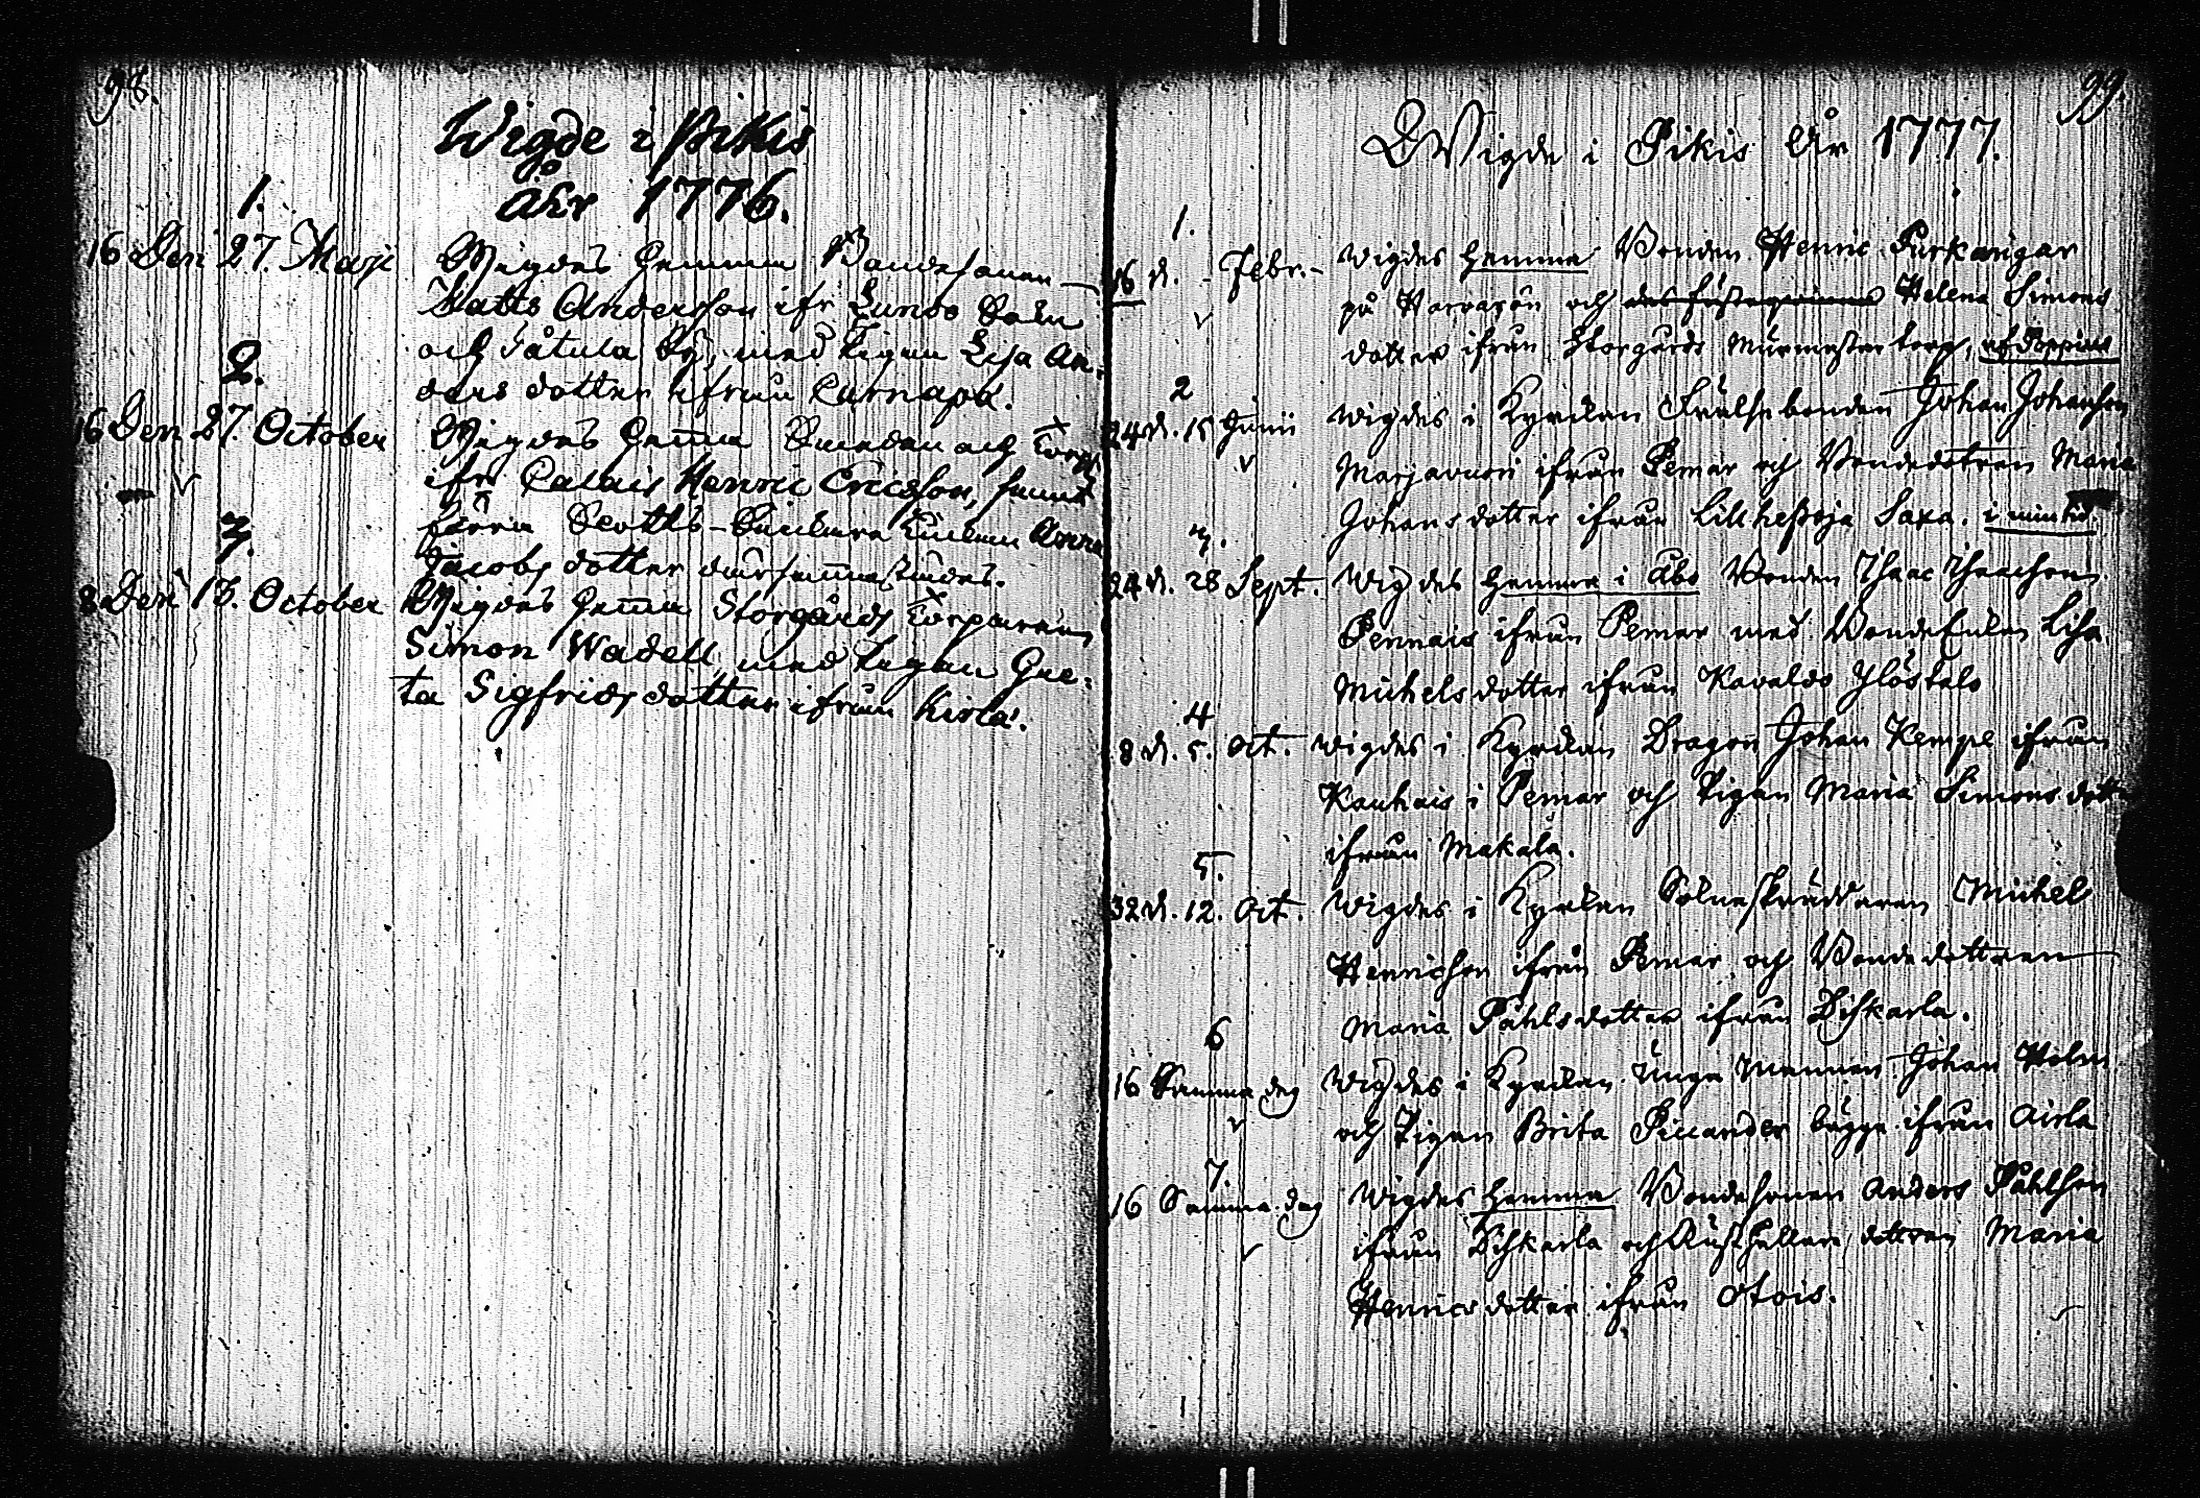 98.
Wigde i Pikis
åhr 1776.
1.
16 Den 27. Maji Wigdes hemma Bondesonen
Matts Andersson ifr. Lundo Sokn
och Tåtula By, med Pigan Lisa An-
ders dotter ifrån Kurnapä.
2.
16 Den 27. October Wigdes hemma Smeden och Torp.
ifr. Calais Henric Ericsson, samt
förra Enkan Anna
Jacobs dotter därsammastädes.
3.
8 Den 13. October Wigdes hemma Storgårds Torparen
Simon Wadell, med Pigan Gre-
ta Sigfrids dotter ifrån Kirla.
99.
Wigde i Pikis År 1777.
1.
16 d. - Febr. - Wigdes hemma Bonden Henric
på Harvasön och Helena Simons
dotter ifrån Storgårds torp,
2
24 d. 15 Junii Wigdes i Kyrckan Frälsebonden Johan Johansson
Marjavuori ifrån Pemar och Bondedotren Maria
Johans dotter ifrån Lillhepoja Saxa. i min tid.
3.
24 d. 28 Sept. Wigdes hemma i Åbo Bonden Isaac Isaacsson
Pennais ifrån Pemar med Bonde Enkan Lisa
Michels dotter ifrån Kavaldo Ylöstalo
4
8 d. 5. Oct. Wigdes i Kyrckan Dragon Johan Kempe ifrån
Kauhais i Pemar och Pigan Maria Simons dott.
ifrån Makala.
5.
32 d. 12. Oct. Wigdes i Kyrckan Sokneskräddaren Michel
Henricsson ifrån Pemar och Bondedottren
Maria Påhls dotter ifrån Diskarla.
6
16 Samma dag Wigdes i Kyrckan Unge Mannen Johan Holm
och Pigan Brita Picander bägge ifrån Airla
7.
16 Samma dag Wigdes hemma Bondesonen Anders Påhlsson
ifrån Diskarla och Rusthållare dottren Maria
Henrics dotter ifrån Otois.